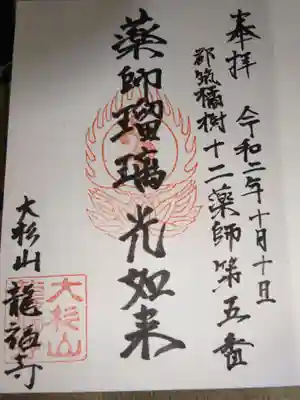 奉拝 令和二年十月十日
都筑橘樹十二薬師第五番
薬師瑠璃光如来
大杉山 龍福寺
大杉山